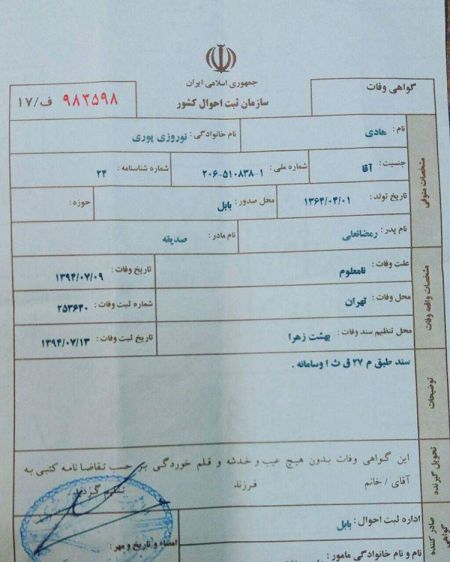 جمهوری اسلامی ایران
سازمان ثبت احوال کشور
گواهی وفات
۹۸۳۵۹۸ ف/۱۷
مشخصات متوفی
نام : هادی
نام خانوادگی : نوروزی پوری
جنسیت : آقا
شماره ملی : ۲۰۶-۵۱۰۸۳۸-۱
شماره شناسنامه : ۲۴
تاریخ تولد : ۱۳۶۴/۰۴/۰۱
محل صدور : بابل
حوزه :
نام پدر : رمضانعلی
نام مادر : صدیقه
مشخصات واقعه وفات
علت وفات : نامعلوم
تاریخ وفات : ۱۳۹۴/۰۷/۰۹
محل وفات : تهران
شماره ثبت وفات : ۲۵۳۶۴۰
محل تنظیم سند وفات : بهشت زهرا
تاریخ ثبت وفات : ۱۳۹۴/۰۷/۱۳
توضیحات
سند طبق م ۲۷ ق ث ا وسامانه .
تحویل گیرنده
این گواهی وفات بدون هیچ عیب و خدشه و قلم خوردگی بر حسب تقاضا نامه کتبی به
آقای / خانم فرزند تسلیم گردید
صادر کننده گواهی
اداره ثبت احوال : بابل
امضاء و تاریخ و مهر :
نام و نام خانوادگی مامور :